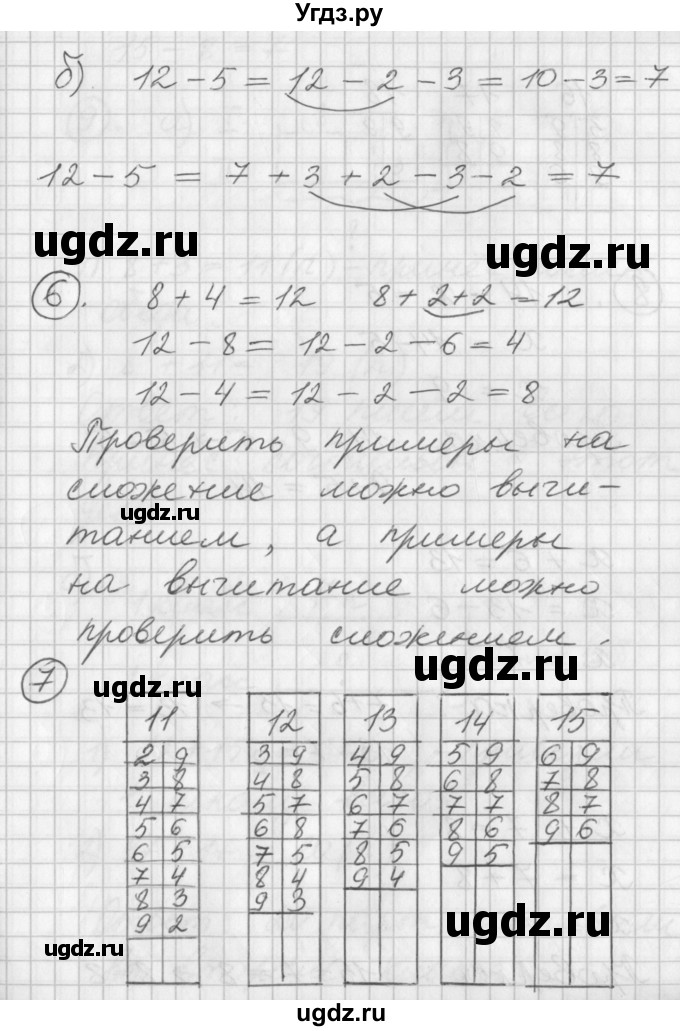 Угдз.ру
б) 12 - 5 = 12 - 2 - 3 = 10 - 3 = 7
12 - 5 = 7 + 3 + 2 - 3 - 2 = 7
ugdz.ru ugdz.ru
6. 8 + 4 = 12 8 + 2 + 2 = 12
12 - 8 = 12 - 2 - 6 = 4
12 - 4 = 12 - 2 - 2 = 8
Проверить примеры на
сложение можно вычи-
ugdz.ru
танием, а примеры
на вычитание можно
проверить сложением.
ugdz.ru
7
ugdz.ru
11 12 13 14 15
2 9 3 9 4 9 5 9 6 9
3 8 4 8 5 8 6 8 7 8
4 7 5 7 6 7 7 7 8 7
5 6 6 8 7 6 8 6 9 6
6 5 7 5 8 5 9 5
7 4 8 4 9 4
8 3 9 3
9 2
ugdz.ru
ugdz.ru
ugdz.ru